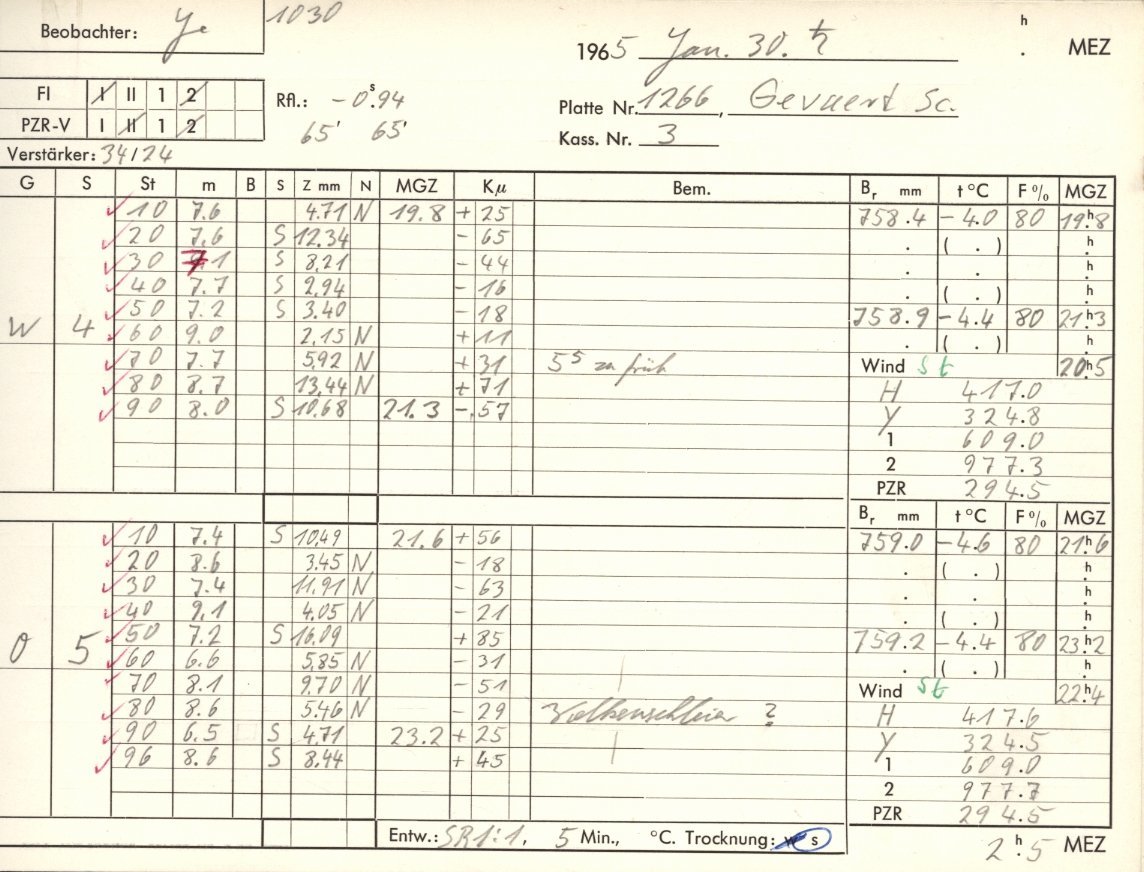 Beobachter: Ye 1030
1965 Jan. 30. ♄ h . MEZ
FI I II 1 2
PZR-V I II 1 2
Rfl.: -0s.94
65' 65'
Platte Nr. 1266, Gevaert Sc.
Kass. Nr. 3
Verstärker: 34/24
G S St m B S Z mm N MGZ Kμ Bem. Br mm t °C F % MGZ
10 7.6 4.71 N 19.8 + 25 758.4 -4.0 80 19h8
20 7.6 S 12.34 - 65 . ( . ) h
30 7.1 S 8.21 - 44 . . h
40 7.7 S 2.94 - 16 . ( . ) h
50 7.2 S 3.40 - 18 758.9 -4.4 80 21h3
W 4 60 9.0 2.15 N + 11 . ( . ) h
70 7.7 5.92 N + 31 5s zu früh Wind St 20h5
80 8.7 13.44 N + 71 H 417.0
90 8.0 S 10.68 21.3 - 57 Y 324.8
1 609.0
2 977.3
PZR 294.5
Br mm t °C F % MGZ
10 7.4 S 10.49 21.6 + 56 759.0 -4.6 80 21h6
20 8.6 3.45 N - 18 . ( . ) h
30 7.4 11.91 N - 63 . . h
40 9.1 4.05 N - 21 . ( . ) h
50 7.2 S 16.09 + 85 759.2 -4.4 80 23h2
O 5 60 6.6 5.85 N - 31 . ( . ) h
70 8.1 9.70 N - 51 Wind St 22h4
80 8.6 5.46 N - 29 Wolkenschleier ? H 417.6
90 6.5 S 4.71 23.2 + 25 Y 324.5
96 8.6 S 8.44 + 45 1 609.0
2 977.7
PZR 294.5
Entw.: SR1:1, 5 Min., °C. Trocknung: w s 2h.5 MEZ